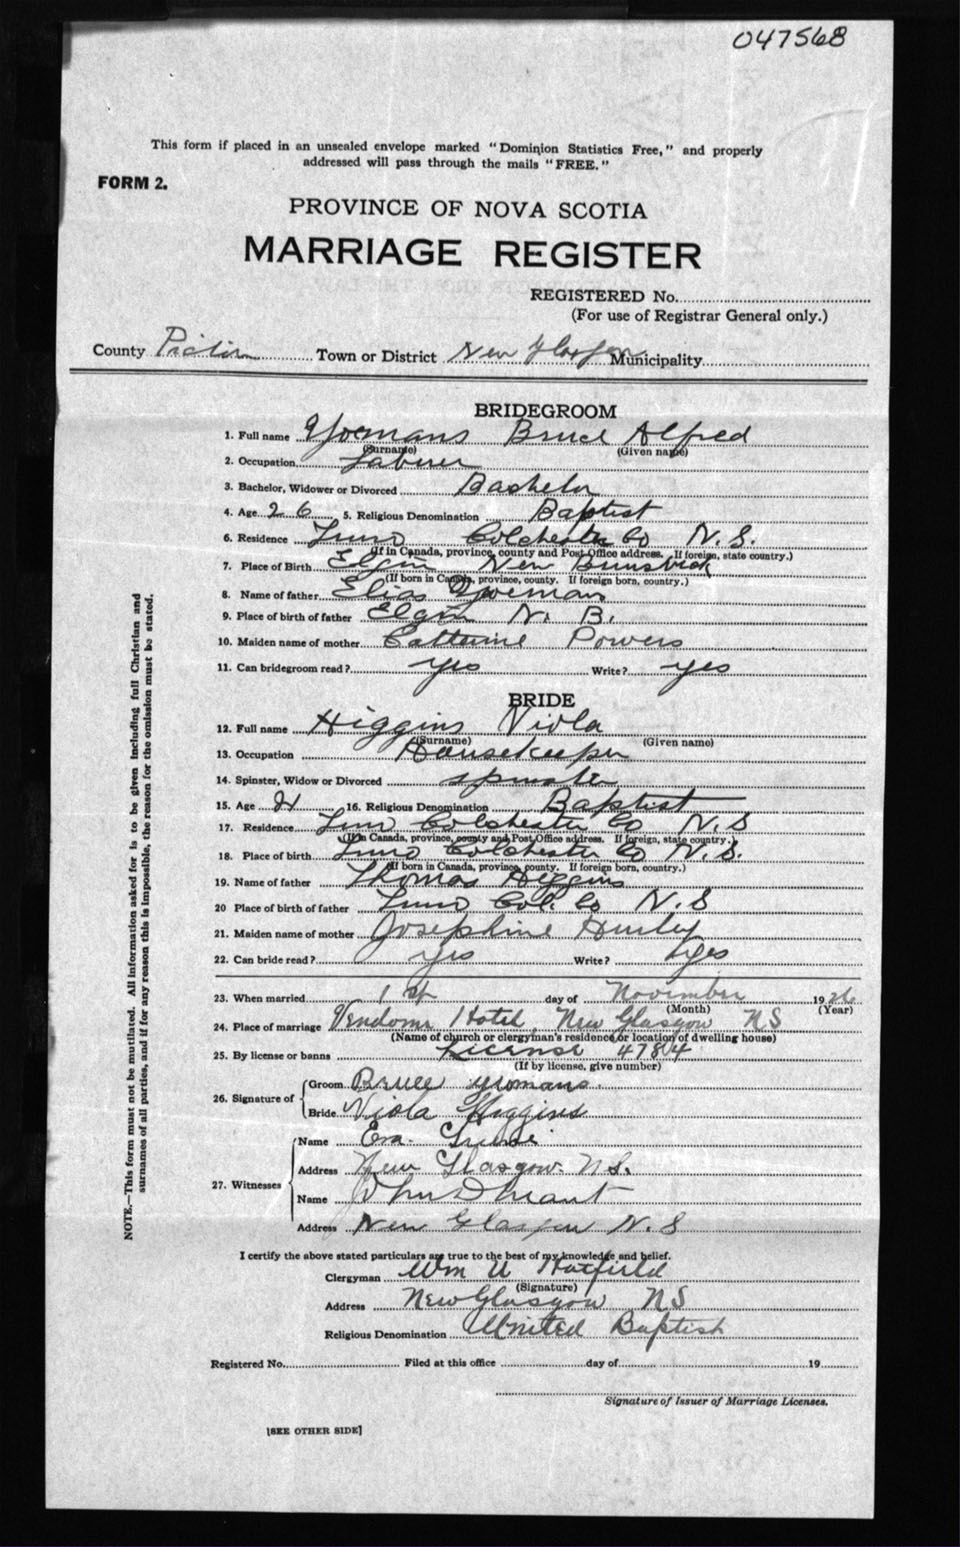 047568
This form if placed in an unsealed envelope marked "Dominion Statistics Free," and properly
addressed will pass through the mails "FREE."
FORM 2.
PROVINCE OF NOVA SCOTIA
MARRIAGE REGISTER
REGISTERED No.
(For use of Registrar General only.)
County Pictou Town or District New Glasgow Municipality
BRIDEGROOM
1. Full name Yoemans Bruce Alfred
(Surname) (Given name)
2. Occupation Laborer
3. Bachelor, Widower or Divorced Bachelor
4. Age 26 5. Religious Denomination Baptist
6. Residence Truro Colchester Co N.S.
(If in Canada, province, county and Post Office address. If foreign, state country.)
7. Place of Birth Elgin New Brunswick
(If born in Canada, province, county. If foreign born, country.)
8. Name of father Elias Yoeman
9. Place of birth of father Elgin N. B.
10. Maiden name of mother Catterine Powers
11. Can bridegroom read? yes Write? yes
BRIDE
12. Full name Higgins Viola
(Surname) (Given name)
13. Occupation Housekeeper
14. Spinster, Widow or Divorced spinster
15. Age 21 16. Religious Denomination Baptist
17. Residence Truro Colchester Co N.S
(If in Canada, province, county and Post Office address. If foreign, state country.)
18. Place of birth Truro Colchester Co N.S.
(If born in Canada, province, county. If foreign born, country.)
19. Name of father Thomas Higgins
20 Place of birth of father Truro Col. Co N.S
21. Maiden name of mother Josephine Hurley
22. Can bride read? yes Write? yes
23. When married 1st day of November 1926
(Month) (Year)
24. Place of marriage Vendome Hotel, New Glasgow NS
(Name of church or clergyman's residence or location of dwelling house)
25. By license or banns License 4784
(If by license, give number)
26. Signature of
Groom Bruce Yomans.
Bride Viola Higgins
27. Witnesses
Name
Address New Glasgow. N.S.
Name John D
Address New Glasgow N.S
I certify the above stated particulars are true to the best of my knowledge and belief.
Clergyman Wm U Hatfield
(Signature)
Address New Glasgow NS
Religious Denomination United Baptist
Registered No. Filed at this office day of 19
Signature of Issuer of Marriage Licenses.
[SEE OTHER SIDE]
NOTE.—This form must not be mutilated. All information asked for is to be given including full Christian and
surnames of all parties, and if for any reason this is impossible, the reason for the omission must be stated.